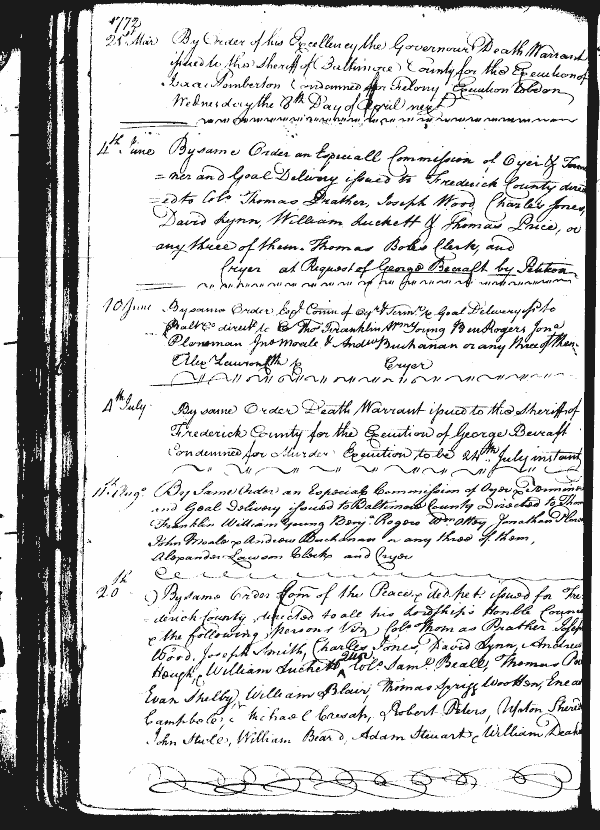 1772
21st Mar By Order of his Excellency the Governour Death Warrant
issued to the Sheriff of Baltimore County for the Execution of
Isaac Pemberton Condemned for Felony Execution to be on
Wednesday the 8th Day of April next
4th June By same Order an Especiall Commission of Oyer & Termi
=ner and Goal Delivery issued to Frederick County direct
=ed to Colo Thomas Prather, Joseph Wood, Charles Jones,
David Lynn, William Luckett & Thomas Price, or
any three of them. Thomas Boles Clerk, and
Cryer at Request of George Becraft by Petition
10 June By same Order Espl Comn of Oyr & Termr & Goal Delivery iss'd to
Balte Co direct'd to Thos Franklin Wm Young Ben Rogers Jona
Plowman Jno Moale & Andw Buchanan or any three of them
Alex Lawson Clk & Cryer
4th July By same Order Death Warrant issued to the Sheriff of
Frederick County for the Execution of George Becraft
Condemned for Murder Execution to be 24th July instant
11th Augt By Same Order an Especial Commission of Oyer & Terminer
and Goal Delivery issued to Baltimore County directed to Thos
Franklin William Young Benjn Rogers Wm Otley, Jonathan Plow
John Moale & Andrew Buchanan or any three of them,
Alexander Lawson Clerk and Cryer
20th By same Order Com of the Peace & ded. pot. issued for Fre
derick County directed to all his Lordship's Honble Council
& the following Persons Viz Colo Thomas Prather Joseph
Wood, Joseph Smith, Charles Jones, David Lynn, Andrew
Heugh, William Luckett Colo Saml Beall, Thomas
Evan Shelby, William Blair, Thomas Sprigg Wootton, Eneas
Campbell, Michael Cresap, Robert Peters, Upton Sheri
John Stull, William Beard, Adam Steuart & William Deak